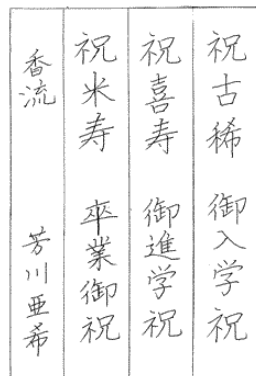 祝古稀 御入学祝
祝喜寿 御進学祝
祝米寿 卒業御祝
香流 芳川亜希